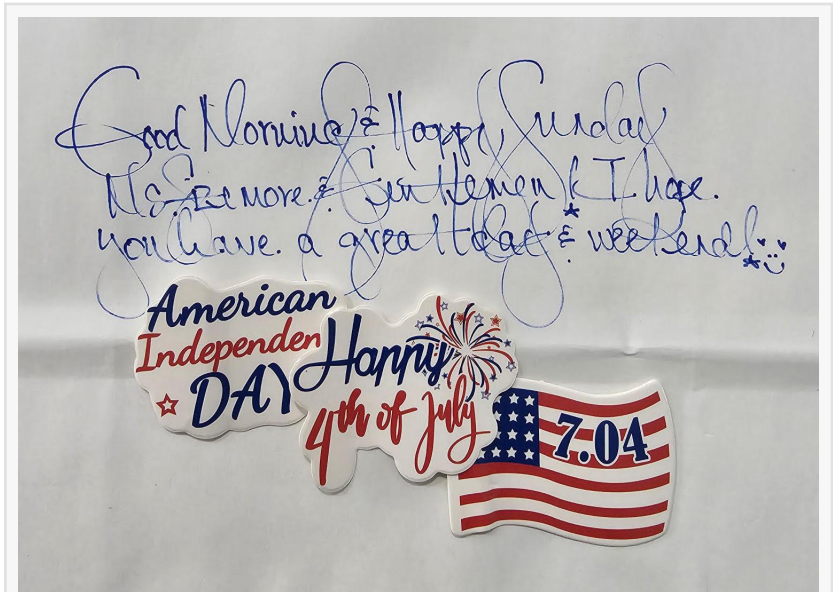 Good Morning & Happy Sunday
& Gentlemen I hope.
you have. a great day & weekend!
American
Independen
DAY
Happy
4th of July
7.04